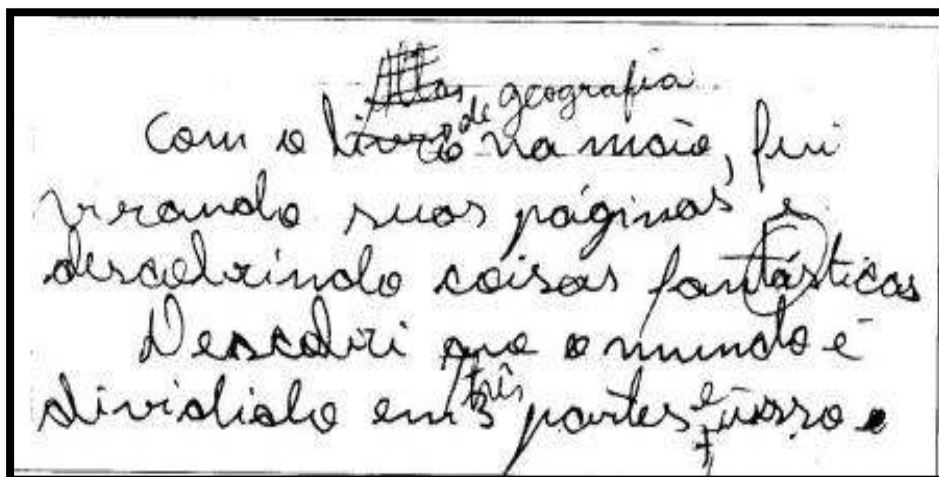 Atlas de geografia
Com o livro na mão, fui
virando suas páginas e
descobrindo coisas fantásticas
Descobri que o mundo é
dividido em três partes e isso e